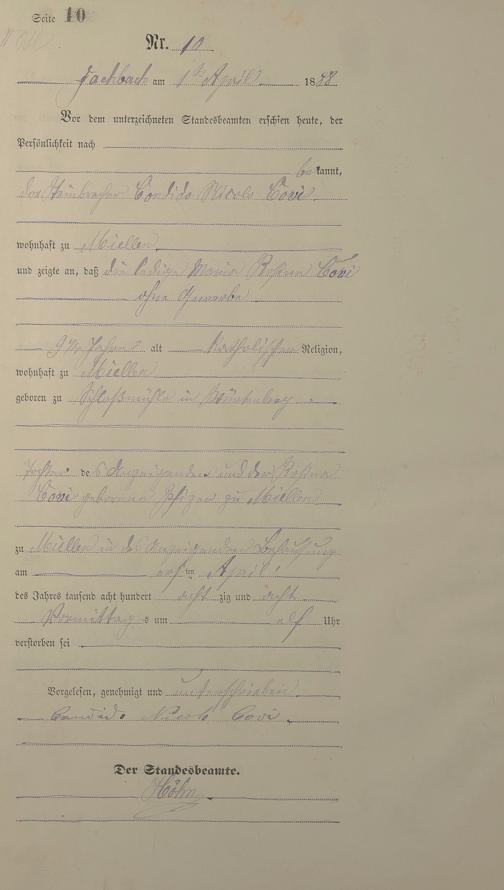 Seite 10
Nr. 10
Fachbach am 1ten April 1888
Vor dem unterzeichneten Standesbeamten erschien heute, der
Persönlichkeit nach
bekannt,
der Steinbrecher Candido Nicolo Covi
wohnhaft zu Miellen
und zeigte an, daß die ledige Maria Rosina Covi
ohne Gewerbe
Jahre alt katholischer Religion,
wohnhaft zu Miellen
geboren zu Schloßmühle in
Tochter des Anzeigenden und der Rosina
Covi geborenen zu Miellen
zu Miellen in des Anzeigenden Behausung
am ersten April
des Jahres tausend acht hundert achtzig und acht
Vormittags um elf Uhr
verstorben sei
Vorgelesen, genehmigt und unterschrieben
Candido Nicolo Covi.
Der Standesbeamte.
Höhn